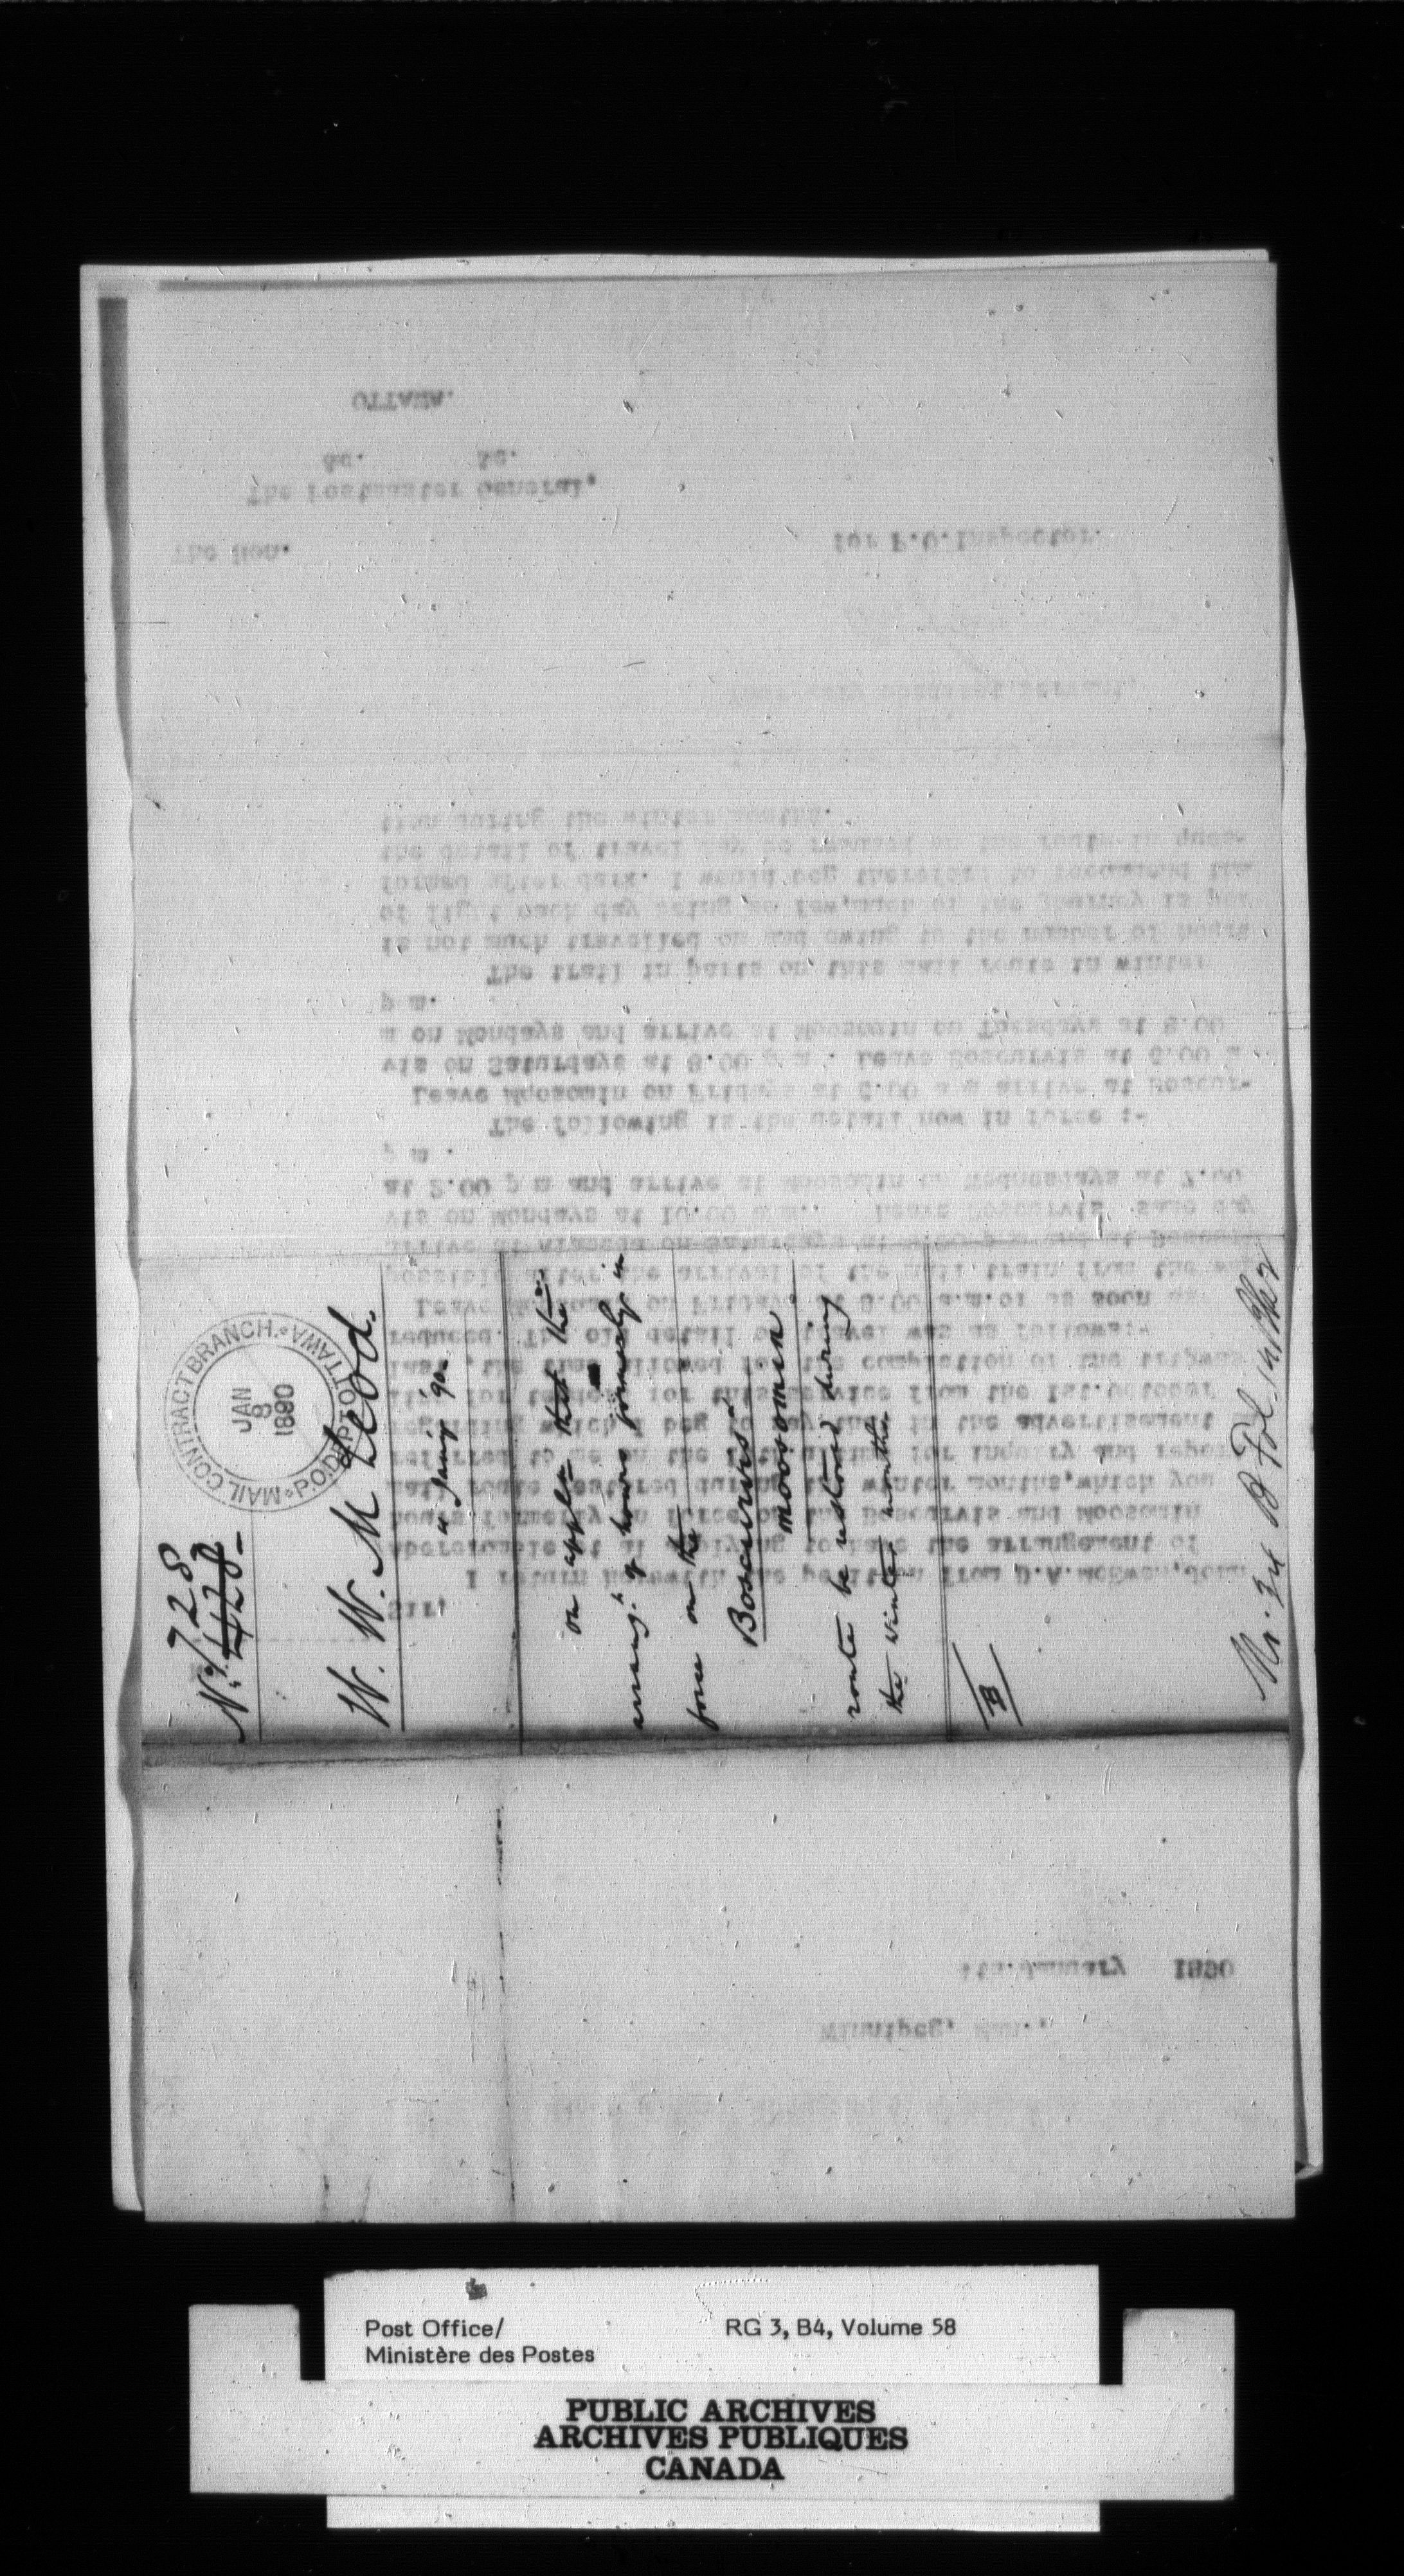 No. 728
428
MAIL CONTRACT BRANCH. P.O. DEPT OTTAWA
JAN
8
1890
W. W. McLeod.
4 Jany '90
on appln that the
arrangt of hours formerly in
force on the
Boscurvis &
Moosomin
route be restored during
the winter months
Winnipeg, Man.,
4th. January 1890
Sir,
I return herewith the petition from D.A. McEwen, John
Abercrombie et al applying to have the arrangement of
hours formerly in force on the Boscurvis and Moosomin
mail route restored during the winter months, which you
referred to me on the for inquiry and report
regarding which I beg to say that in the advertisement
for tenders for this service from the 1st. October
last, the time allowed for the completion of the trip was
reduced. The old detail of travel was as follows:-
Leave Moosomin on Fridays at 8.00 a.m. or as soon as
possible after the arrival of the mail train from the
arrive at Alameda on Saturdays at and at Boscur-
vis on Mondays at 10.00 a.m.. Leave Boscurvis same day
at 2.00 p m and arrive at Moosomin on Wednesdays at 7.00
p m .
The following is the detail now in force :-
Leave Moosomin on Fridays at 6.00 a m arrive at Boscur-
vis on Saturdays at 8.00 p m . Leave Boscurvis at 6.00 a
m on Mondays and arrive at Moosomin on Tuesdays at 8.00
p m.
The trail in parts on this mail route in winter
is not much travelled on and owing to the number of hours
of light each day being so few, much of the journey is per
formed after dark. I would beg therefore to recommend that
the detail of travel may be resumed on the route in ques-
tion during the winter months.
Sir,
Your very obedient servant,
for P.O. Inspector.
The Hon.
The Postmaster General,
&c. &c.
OTTAWA.
Post Office/
Ministère des Postes
RG 3, B4, Volume 58
PUBLIC ARCHIVES
ARCHIVES PUBLIQUES
CANADA